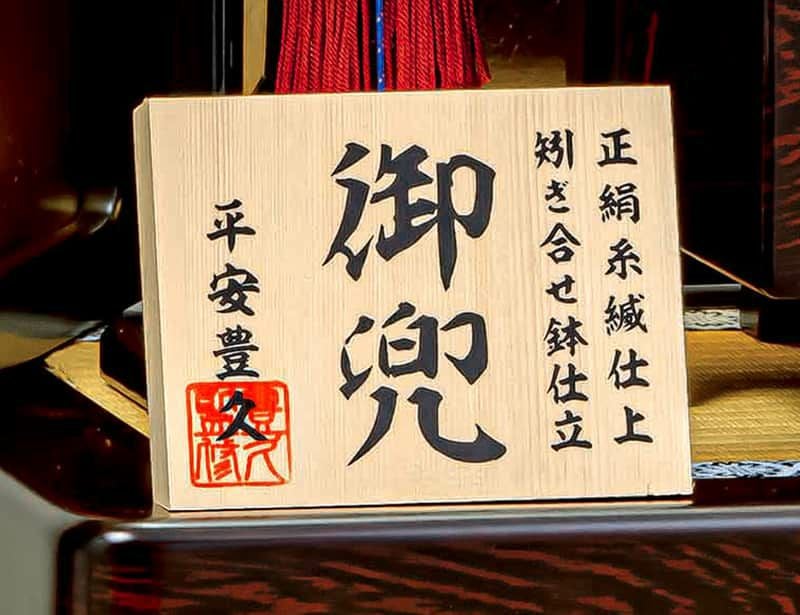 正絹糸縅仕上
矧ぎ合せ鉢仕立
御兜
平安豊久
豊久
監修